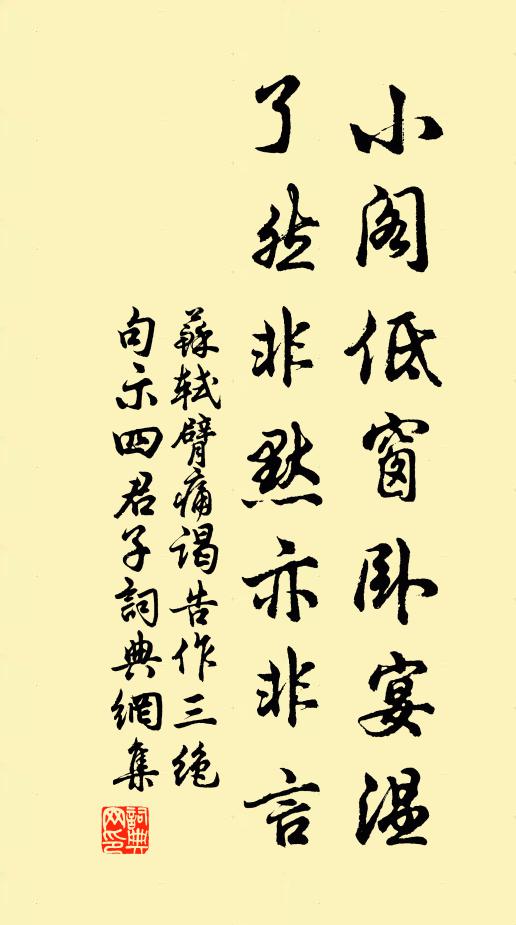 小阁低窗卧宴温
了然非默亦非言
蘇軾臂痛謁告作三绝
句示四君子詞典網集
詞典
网印